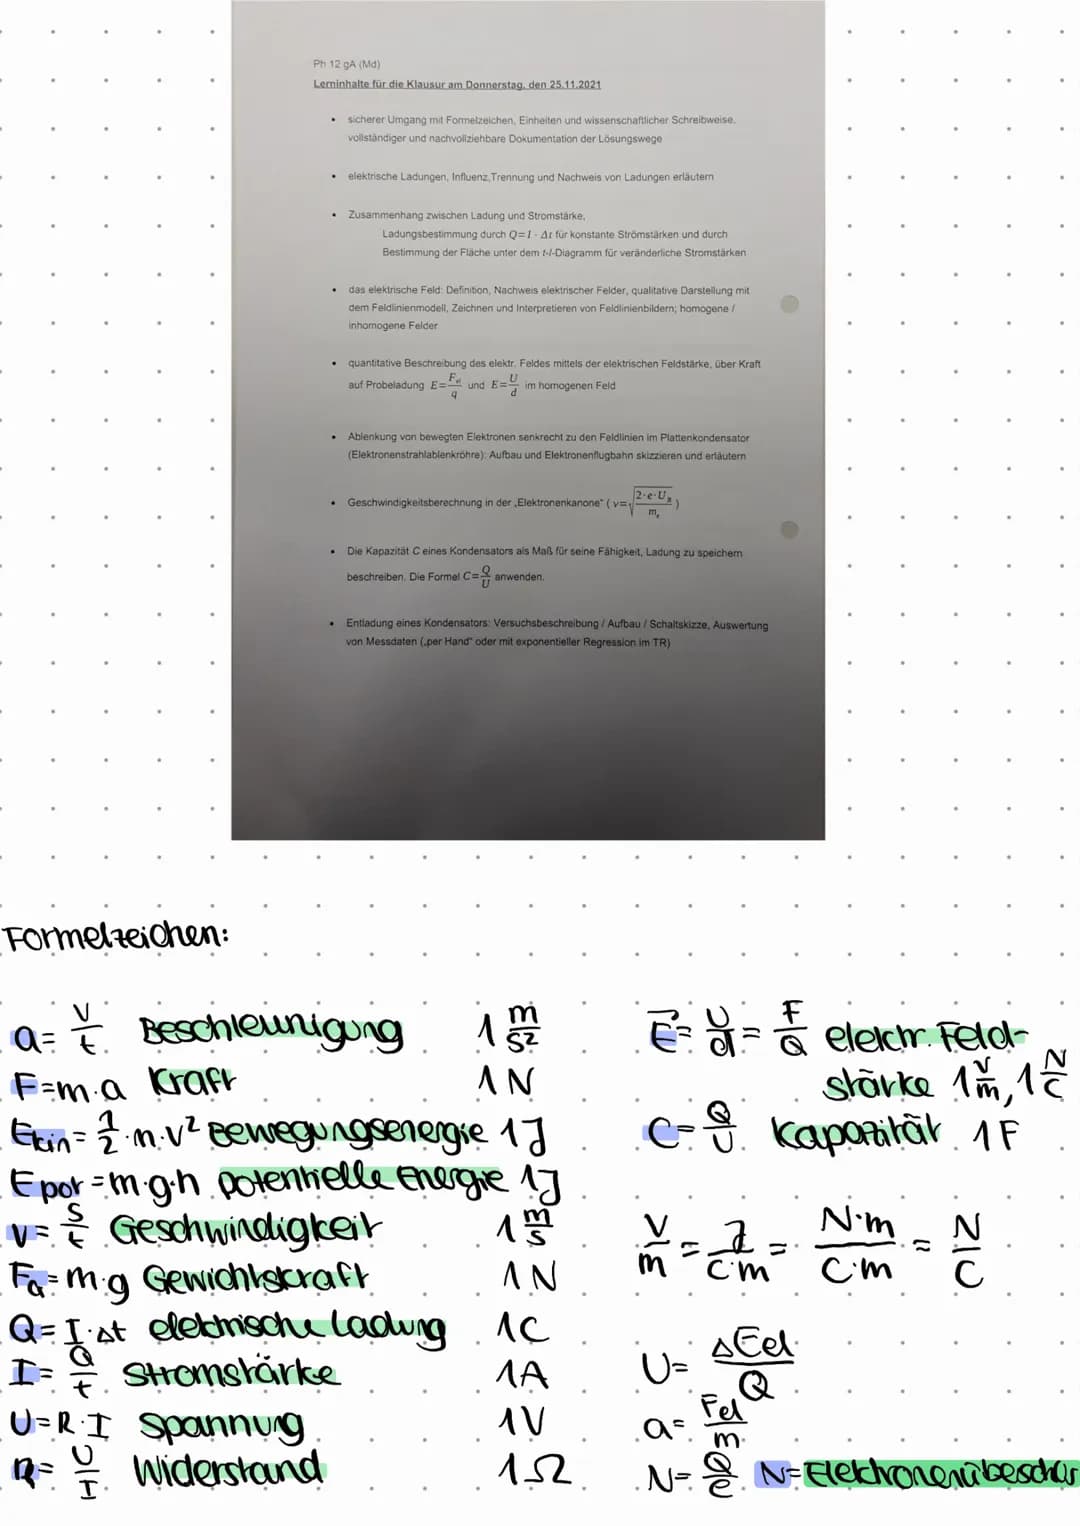 Ph 12 gA (Md)
Lerninhalte für die Klausur am Donnerstag, den 25.11.2021
• sicherer Umgang mit Formelzeichen, Einheiten und wissenschaftlicher Schreibweise,
vollständiger und nachvollziehbare Dokumentation der Lösungswege
• elektrische Ladungen, Influenz,Trennung und Nachweis von Ladungen erläutern
• Zusammenhang zwischen Ladung und Stromstärke,
Ladungsbestimmung durch Q=I · Δt für konstante Strömstärken und durch
Bestimmung der Fläche unter dem t-I-Diagramm für veränderliche Stromstärken
• das elektrische Feld: Definition, Nachweis elektrischer Felder, qualitative Darstellung mit
dem Feldlinienmodell, Zeichnen und Interpretieren von Feldlinienbildern; homogene /
inhomogene Felder
• quantitative Beschreibung des elektr. Feldes mittels der elektrischen Feldstärke, über Kraft
auf Probeladung E=F_el/q und E=U/d im homogenen Feld
• Ablenkung von bewegten Elektronen senkrecht zu den Feldlinien im Plattenkondensator
(Elektronenstrahlablenkröhre): Aufbau und Elektronenflugbahn skizzieren und erläutern
• Geschwindigkeitsberechnung in der „Elektronenkanone" ( v=√(2·e·U_B/m_e) )
• Die Kapazität C eines Kondensators als Maß für seine Fähigkeit, Ladung zu speichern
beschreiben. Die Formel C=Q/U anwenden.
• Entladung eines Kondensators: Versuchsbeschreibung / Aufbau / Schaltskizze, Auswertung
von Messdaten („per Hand" oder mit exponentieller Regression im TR)
Formelzeichen:
a= v/t Beschleunigung 1 m/s²
F=m·a Kraft 1N
Ekin= 1/2·m·v² Bewegungsenergie 1J
Epot=m·g·h potentielle Energie 1J
v= s/t Geschwindigkeit 1 m/s
F_G=m·g Gewichtskraft 1N
Q=I·Δt elektrische Ladung 1C
I= Q/t Stromstärke 1A
U=R·I Spannung 1V
R= U/I Widerstand 1Ω
E⃗= U/d = F/Q elektr. Feld-
stärke 1 V/m, 1 N/C
C= Q/U Kapazität 1F
V/m = J/C·m = N·m/C·m = N/C
U= ΔEel/Q
a= Fel/m
N= Q/e N=Elektronenübeschus